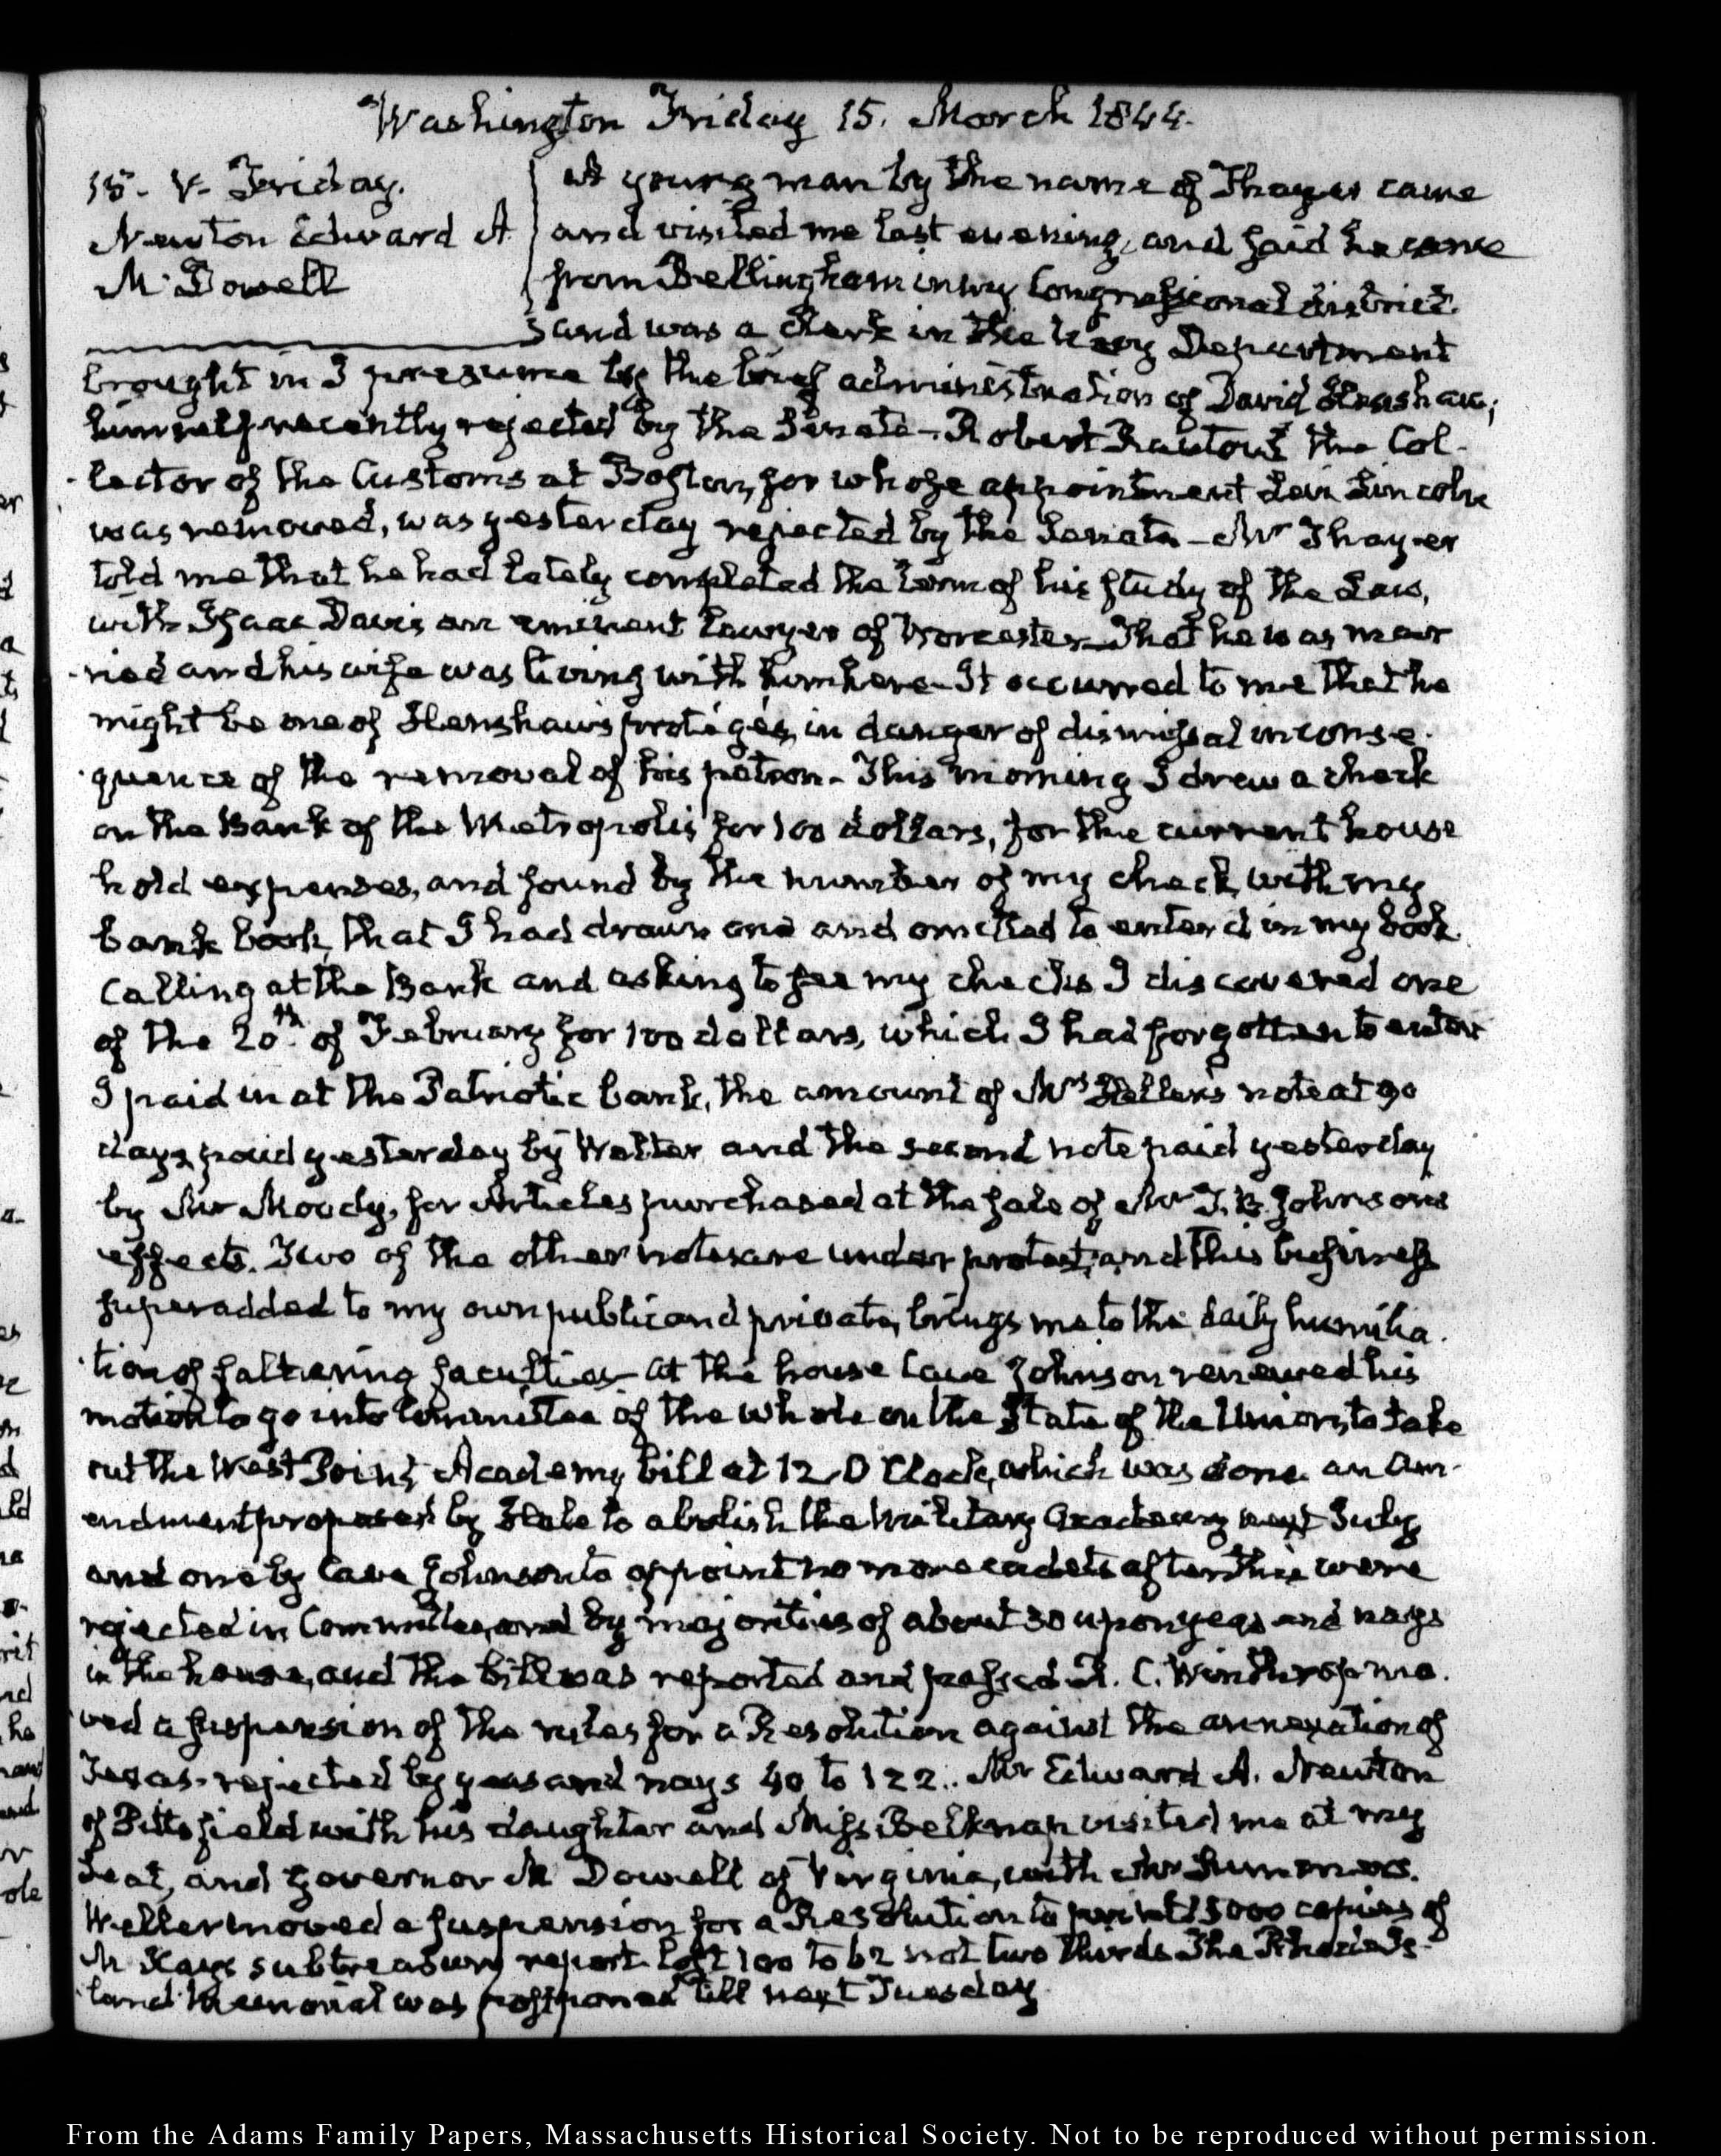 Washington Friday 15. March 1844.
15. V. Friday.
Newton Edward A
McDowell
A young man by the name of Thayer came
and visited me last evening, and said he came
from Bellingham in my Congressional district.
and was a Clerk in the Navy Department
brought in I presume by the brief administration of David Henshaw,
himself recently rejected by the Senate - Robert Rantoul the Col-
lector of the Customs at Boston, for whose appointment Levi Lincoln
was removed, was yesterday rejected by the Senate - Mr Thayer
told me that he had lately completed the term of his study of the Law,
with Isaac Davis an eminent Lawyer of Worcester - That he was mar
ried and his wife was living with him here - It occurred to me that he
might be one of Henshaw's protegés, in danger of dismissal in conse-
quence of the removal of his patron - This morning I drew a check
on the Bank of the Metropolis for 100 dollars, for the current house
hold expenses, and found by the number of my check, with my
bank book, that I had drawn one and omitted to enter it in my book.
Calling at the Bank and asking to see my checks I discovered one
of the 20th. of February for 100 dollars, which I had forgotten to enter
I paid in at the Patriotic bank, the amount of note at 90
days, paid yesterday by and the second note paid yesterday
by Mr Moody, for Articles purchased at the sale of Mr T. B. Johnson's
effects. Two of the other notes are under protest, and this business
superadded to my own public and private, brings me to the daily humilia-
tion of faltering faculties - At the house Cave Johnson renewed his
motion to go into Committee of the whole on the State of the Union, to take
out the West Point Academy bill at 12 O Clock, which was done. an am-
endment proposed by Hale to abolish the Military Academy next July
and one by Cave Johnson to appoint no more cadets after this were
rejected in Committee, and by majorities of about 30 upon yeas and nays
in the house, and the bill was reported and passed. R. C. Winthrop mo-
ved a suspension of the rules for a Resolution against the annexation of
Texas - rejected by yeas and nays 40 to 122. Mr Edward A. Newton
of Pittsfield with his daughter and Miss Belknap visited me at my
seat, and Governor McDowell of Virginia, with Mr Summers.
Weller moved a suspension for a Resolution to print 15000 copies of
McKays subtreasury report. lost 100 to 62 not two thirds The Rhode Is-
land memorial was postponed till next Tuesday
From the Adams Family Papers, Massachusetts Historical Society. Not to be reproduced without permission.